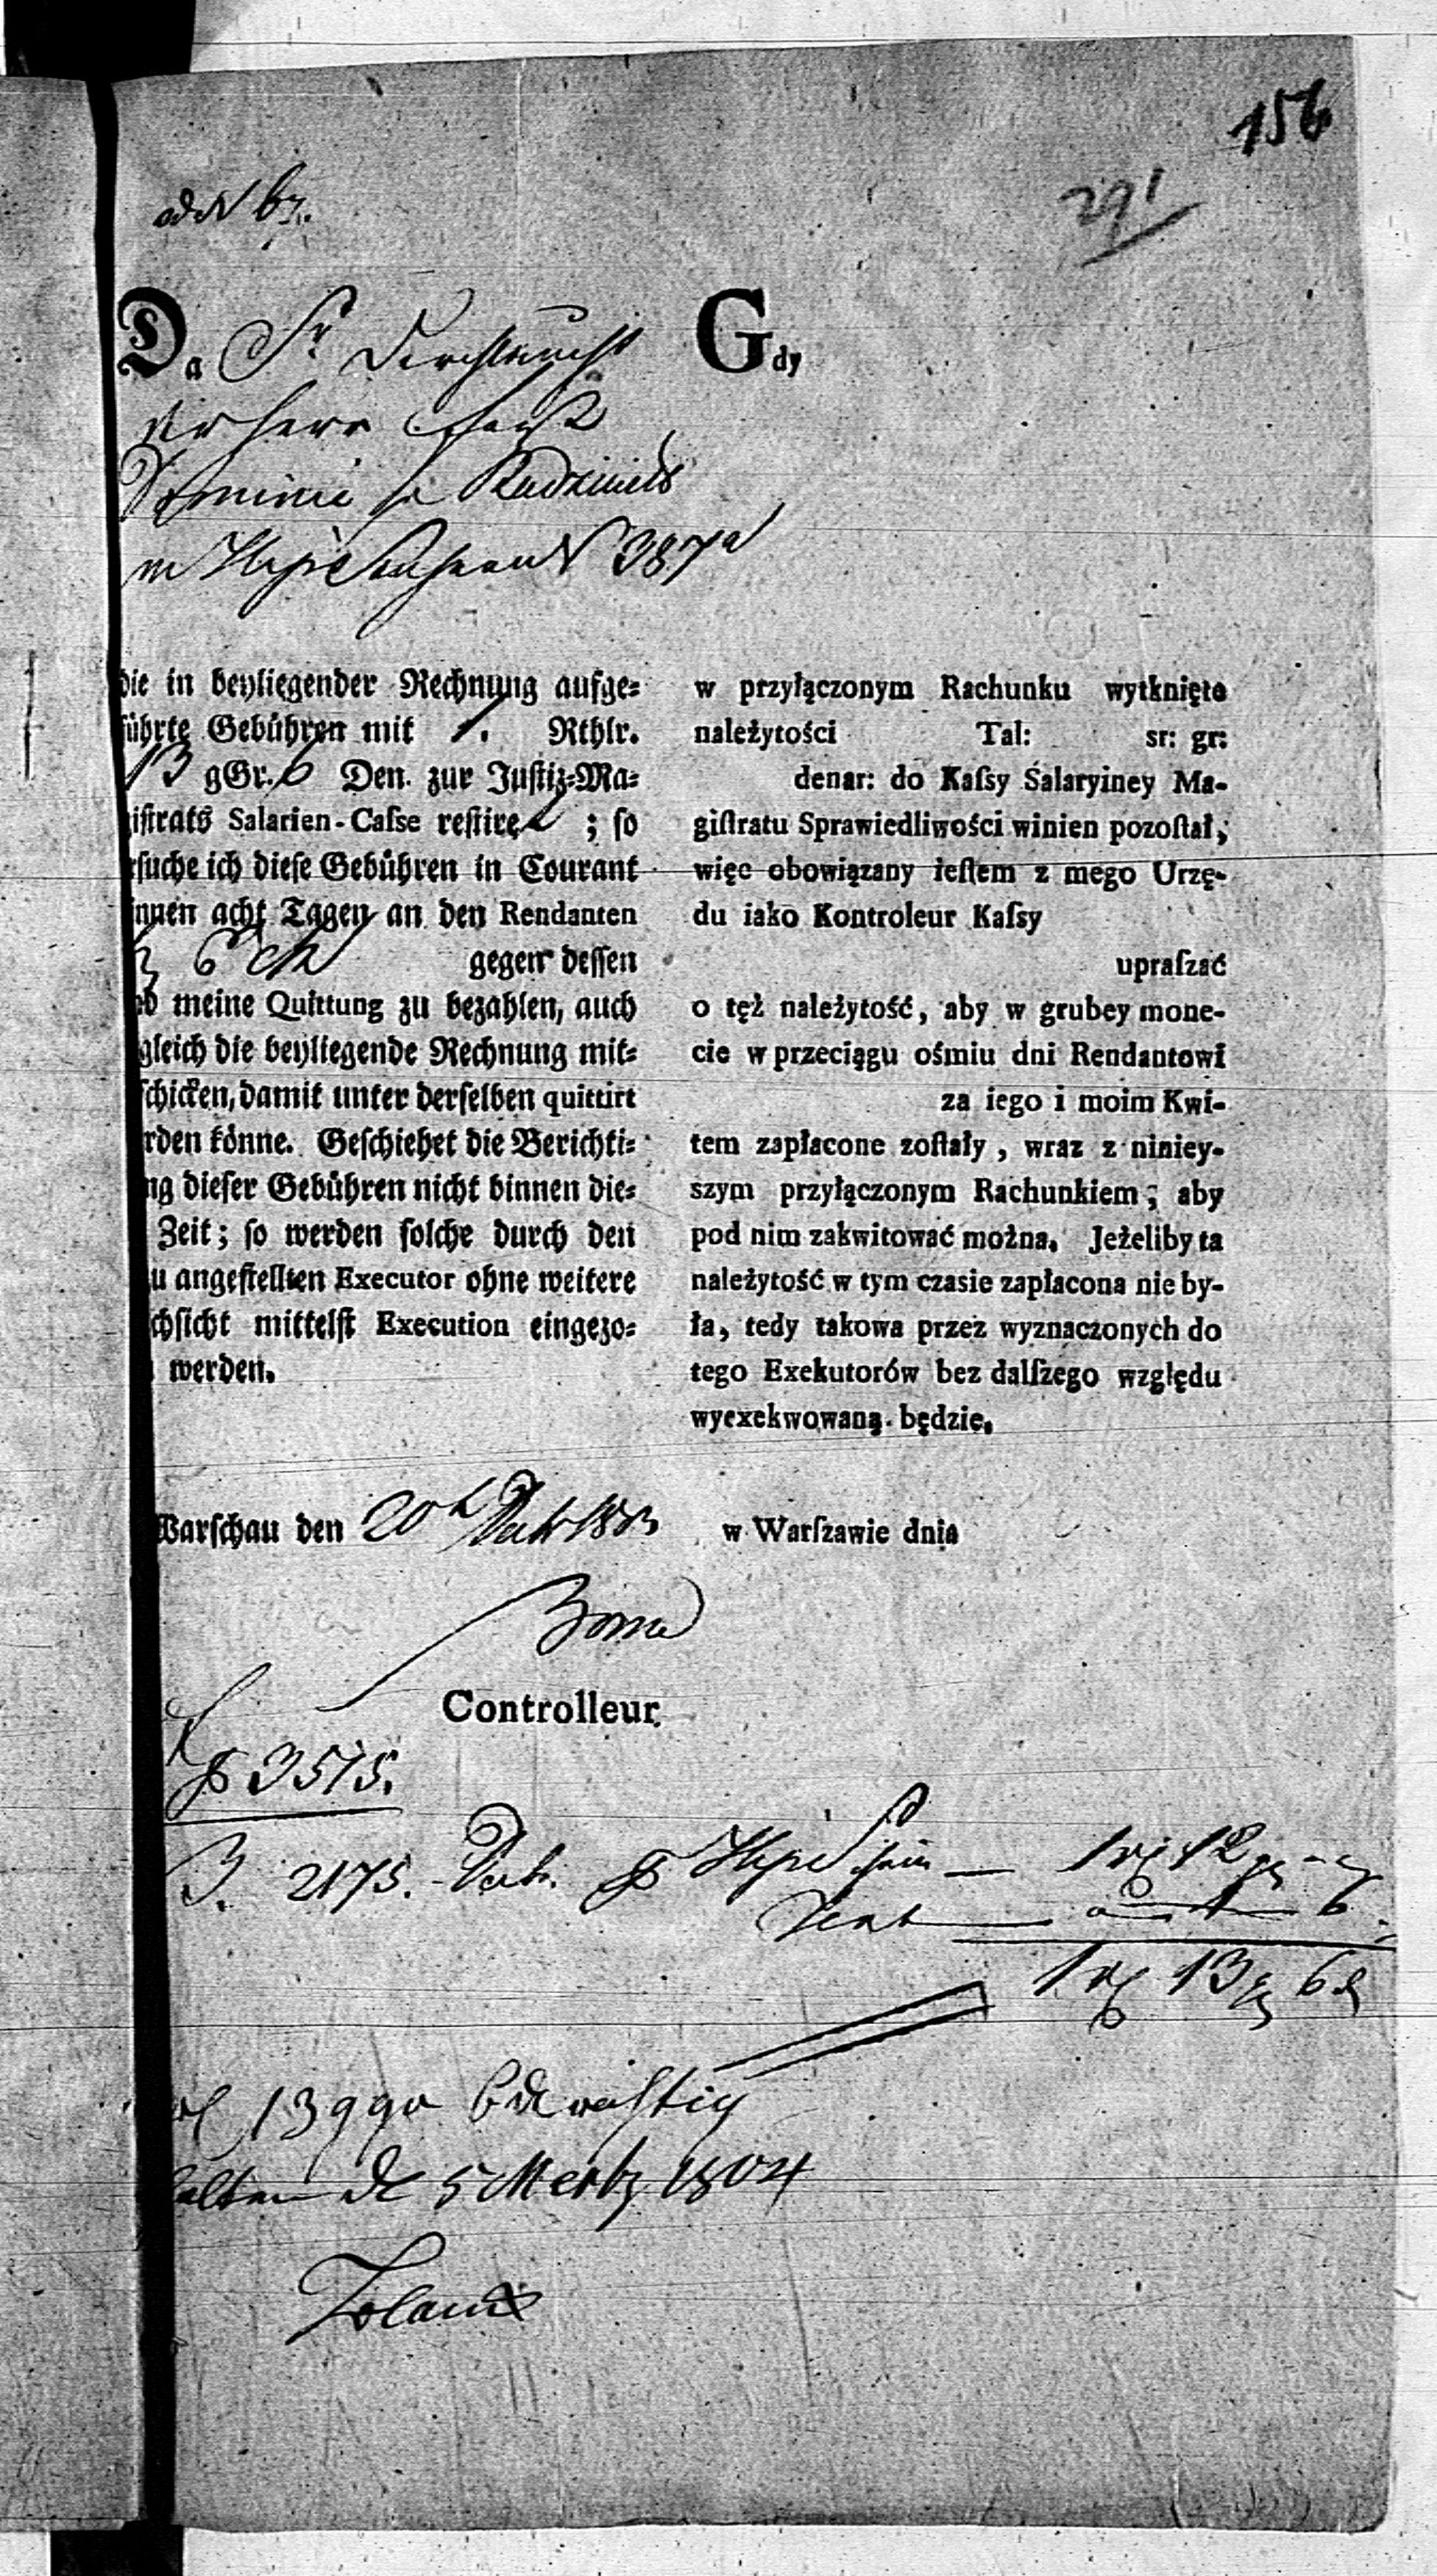 156
291
ad N 67.
Da Sr Durchlaucht
der Herr Fürst
Dominic Radziwill
387
die in beyliegender Rechnung aufge=
führte Gebühren mit 1. Rthlr.
13 gGr. 6 Den. zur Justiz=Ma=
istrats Salarien-Casse restiret ; so
rsuche ich diese Gebühren in Courant
innen acht Tagen an den Rendanten
gegen dessen
nd meine Quittung zu bezahlen, auch
gleich die beyliegende Rechnung mit=
schicken, damit unter derselben quittirt
rden könne. Geschiehet die Berichti=
ng dieser Gebühren nicht binnen die=
Zeit; so werden solche durch den
u angestellten Executor ohne weitere
chsicht mittelst Execution eingezo=
werden.
Warschau den 20 1803
Controlleur.
Gdy
w przyłączonym Rachunku wytknięte
należytości Tal: sr: gr:
denar: do Kaſſy Salaryiney Ma-
giſtratu Sprawiedliwości winien pozoſtał,
więc obowiązany ieſtem z mego Urzę-
du iako Kontroleur Kaſſy
upraſzać
o tęż należytość, aby w grubey mone-
cie w przeciągu ośmiu dni Rendantowi
za iego i moim Kwi-
tem zapłacone zoſtały, wraz z niniey-
szym przyłączonym Rachunkiem; aby
pod nim zakwitować można. Jeżeliby ta
należytość w tym czasie zapłacona nie by-
ła, tedy takowa przez wyznaczonych do
tego Exekutorów bez dalſzego względu
wyexekwowaną będzie.
w Warſzawie dnia
3515.
3. 2175. 1 rl 12
6
1 rl 13 g 6 d
13 ggr 6 d richtig
5 Mertz 1804